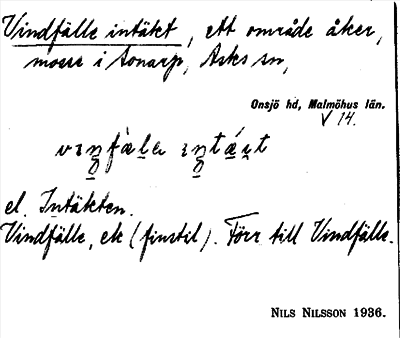 Vindfälle intäkt, ett område åker,
mosse i Tonarp, Asks sn,
Onsjö hd, Malmöhus län.
V 14.
el. Intäkten.
Vindfälle, ek (finstil). Förr till Vindfälle.
NILS NILSSON 1936.